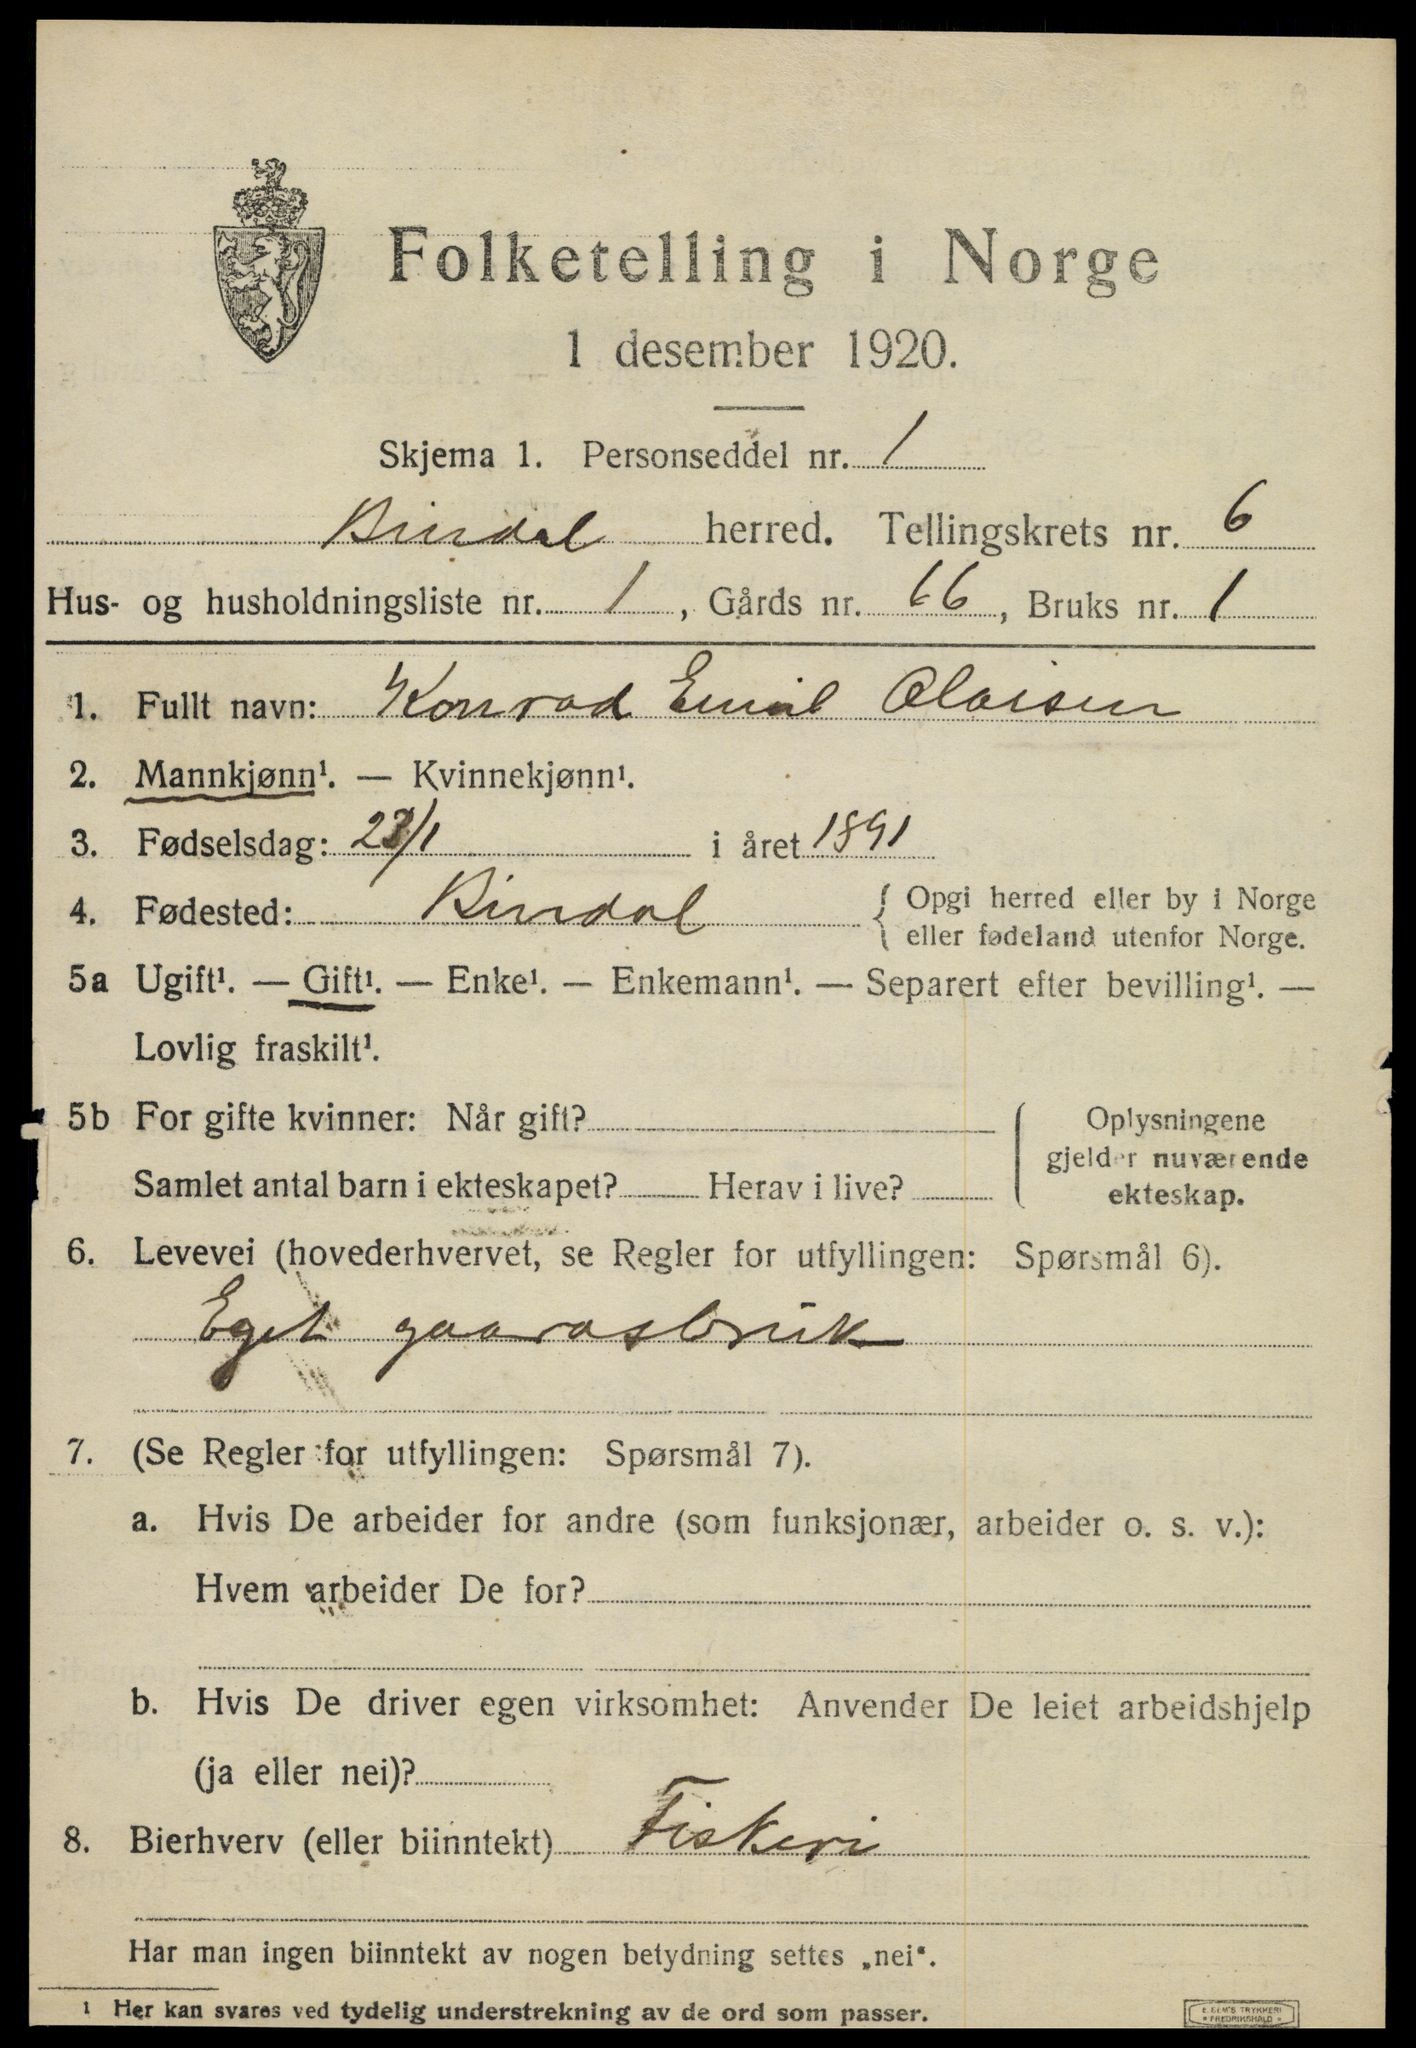 Folketelling i Norge
1 desember 1920.
Skjema 1. Personseddel nr. 1
Bindal herred. Tellingskrets nr. 6
Hus- og husholdningsliste nr. 1, Gårds nr. 66, Bruks nr. 1
1. Fullt navn: Konrad Emil Olaisen
2. Mannkjønn¹. — Kvinnekjønn¹.
3. Fødselsdag: /1 i året 1891
4. Fødested: Bindal { Opgi herred eller by i Norge
eller fødeland utenfor Norge.
5a Ugift¹. — Gift¹. — Enke¹. — Enkemann¹. — Separert efter bevilling¹. —
Lovlig fraskilt¹.
5b For gifte kvinner: Når gift? Oplysningene
gjelder nuværende
Samlet antal barn i ekteskapet? Herav i live? ekteskap.
6. Levevei (hovederhvervet, se Regler for utfyllingen: Spørsmål 6).
Eget gaardsbruk
7. (Se Regler for utfyllingen: Spørsmål 7).
a. Hvis De arbeider for andre (som funksjonær, arbeider o. s. v.):
Hvem arbeider De for?
b. Hvis De driver egen virksomhet: Anvender De leiet arbeidshjelp
(ja eller nei)?
8. Bierhverv (eller biinntekt) Fiskeri
Har man ingen biinntekt av nogen betydning settes „nei“.
¹ Her kan svares ved tydelig understrekning av de ord som passer.
E. SEM'S TRYKKERI
FREDRIKSHALD